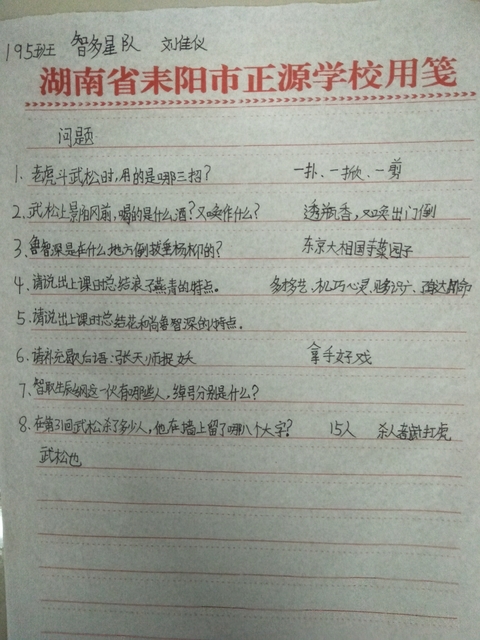 195班 智多星队 刘佳仪
湖南省耒阳市正源学校用笺
问题
1. 老虎斗武松时,用的是哪三招? 一扑、一掀、一剪
2. 武松上景阳冈前,喝的是什么酒?又唤作什么? 透瓶香,又唤出门倒
3. 鲁智深是在什么地方倒拔垂杨柳的? 东京大相国寺菜园子
4. 请说出上课时总结浪子燕青的特点。 多才多艺、机巧心灵、
5. 请说出上课时总结花和尚鲁智深的特点。
6. 请补充歇后语:张天师捉妖 拿手好戏
7. 智取生辰纲这一伙有哪些人,绰号分别是什么?
8. 在第31回武松杀了多少人,他在墙上留了哪八个大字? 15人 杀人者打虎
武松也